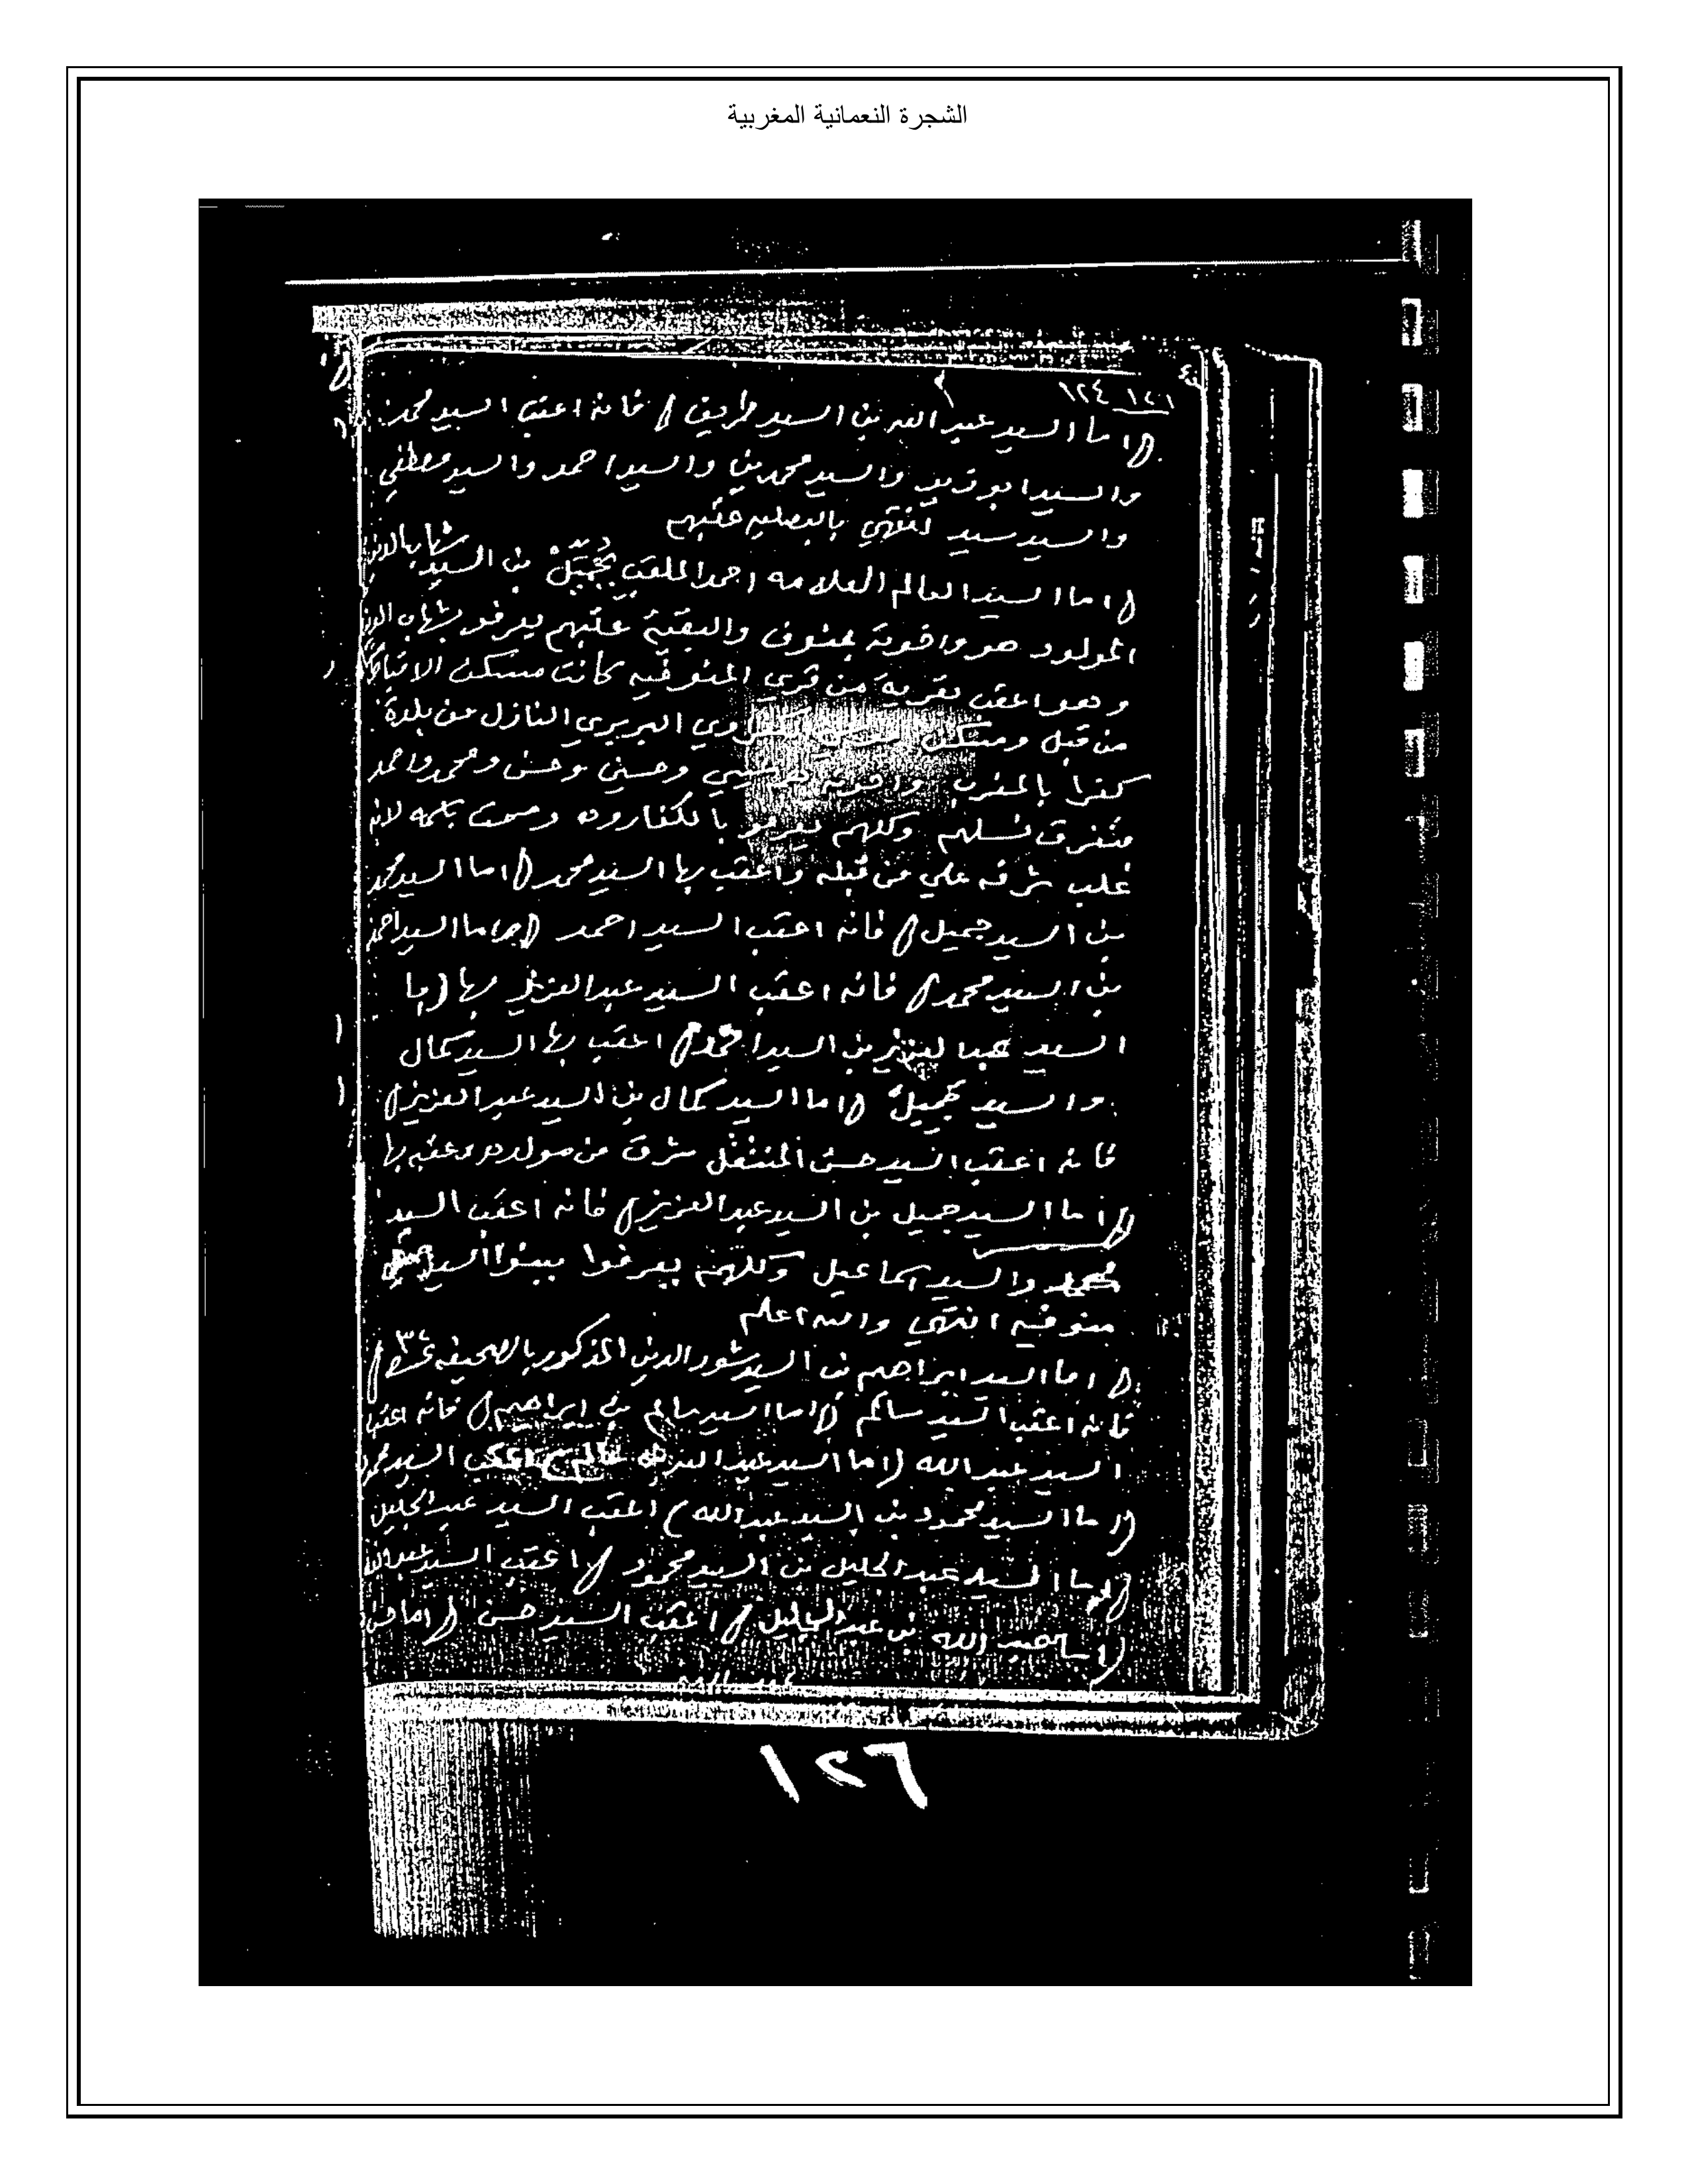 الشجرة النعمانية المغربية
١٢٤ ١٢١
(اما السيد عبد الله بن السيد طريف) فانه اعقب السيد محمد
والسيد ابو زيد والسيد محمدين والسيد احمد والسيد مصطفي
والسيد سيد انتهي بالبصليه عقبهم
(اما السيد العالم العلامه احمد الملقب بجميل بن السيد شهاب الدين
المولود هو واخوته بمنوف والبقية عقبهم يعرفو بشهاب الدين
وهو اعقب بقرية من قري المنوفيه كانت مسكن
من قبل ومسكن البربري النازل من بلدة
كفرا بالمغرب واخوته وحسين وحسن ومحمد واحمد
متفرق نسلهم وكلهم يعرفو بالكفاروه وسميت باسمه لانه
غلب شرفه علي من قبله واعقب بها السيد محمد (اما السيد محمد
بن السيد جميل) فانه اعقب السيد احمد (اما السيد احمد
بن السيد محمد) فانه اعقب السيد عبد العزيز بها (اما
السيد عبد العزيز بن السيد احمد) اعقب بها السيد كمال
والسيد جميل (اما السيد كمال بن السيد عبد العزيز)
فانه اعقب السيد حسن المنتقل شرق من مولده وعقبه بها
(اما السيد جميل بن السيد عبد العزيز) فانه اعقب السيد
محمد والسيد اسماعيل وكلهم يعرفوا ببنوا السيد جميل
منوفيه انتهي والله اعلم
(اما السيد ابراهيم بن السيد نور الدين المذكور بالصحيفه
فانه اعقب السيد سالم (اما السيد سالم بن ابراهيم) فانه اعقب
السيد عبد الله (اما السيد عبد الله بن سالم) اعقب السيد محمود
(اما السيد محمود بن السيد عبد الله) اعقب السيد عبد الجليل
(اما السيد عبد الجليل بن السيد محمود) اعقب السيد عبد الله
(اما عبد الله بن عبد الجليل) اعقب السيد حسن (اما حسن
١٢٦